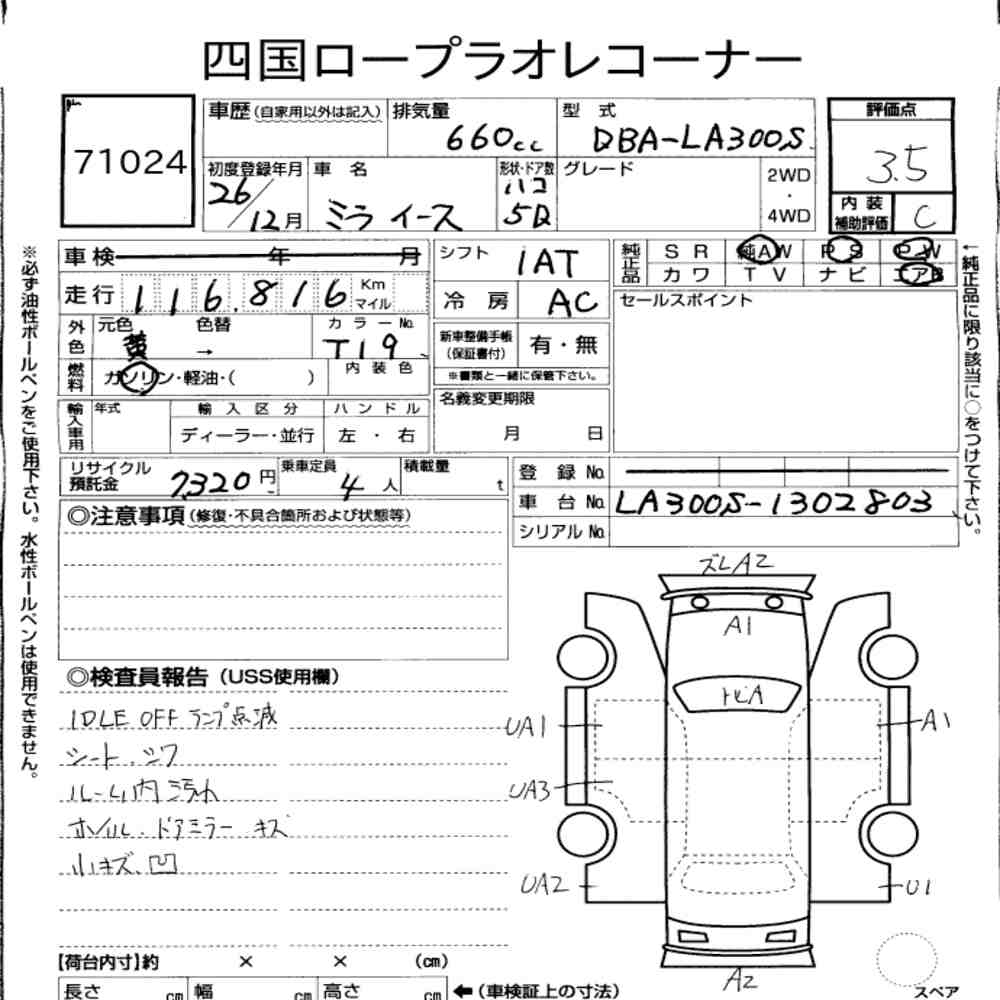 四国ロープラオレコーナー
71024
車歴(自家用以外は記入) 排気量 660cc 型式 DBA-LA300S 評価点 3.5
初度登録年月 26/12月 車名 ミライース 形状・ドア数 ハコ 5D グレード 2WD・4WD 内装補助評価 C
※必ず油性ボールペンをご使用下さい。水性ボールペンは使用できません。
車検 年 月 シフト IAT 純正品 SR 純AW PS PW
走行 116,816 Km マイル 冷房 AC カワ TV ナビ エアB
外色 元色 黄 色替 → カラーNo. T19 新車整備手帳(保証書付) 有・無 セールスポイント
燃料 ガソリン・軽油・( ) 内装色 ※書類と一緒に保管下さい。
輸入車用 年式 輸入区分 ハンドル 名義変更期限
ディーラー・並行 左・右 月 日
↑純正品に限り該当に○をつけて下さい。
リサイクル預託金 7,320円 乗車定員 4人 積載量 t 登録No.
車台No. LA300S-1302803
シリアルNo.
◎注意事項(修復・不具合箇所および状態等)
◎検査員報告(USS使用欄)
IDLE OFF ランプ点滅
シート、シワ
ルーム内汚れ
ホイル、ドアミラー キズ
小キズ、凹
ズレA2
A1
トビA
UA1 A1
UA3
UA2 U1
A2
【荷台内寸】約 × × (cm)
長さ cm 幅 cm 高さ cm ←(車検証上の寸法)
スペア